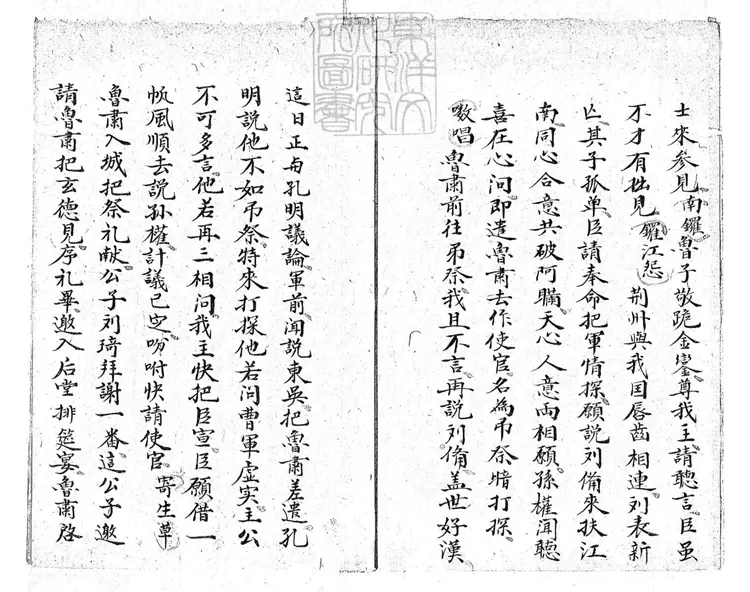 士來參見南鑼魯子敬跪金鑾尊我主請聽言臣虽
不才有拙見鑼江怨荆州與我国唇齒相連刘表新
亡其子孤单臣請奉命把軍情探願說刘備來扶江
南同心合意共破阿瞞天心人意両相願孫權聞聽
喜在心问即遣魯肅去作使官名為吊祭暗打探
數唱魯肅前往吊祭我且不言再說刘備盖世好漢
這日正與孔明議論軍前闻說東吳把魯肅差遣孔
明說他不如吊祭特來打探他若问曹軍虚实主公
不可多言他若再三相问我主快把臣宣臣願借一
帆風順去說孫權計議已定吩咐快請使官寄生草
魯肅入城把祭礼献公子刘琦拜謝一番這公子邀
請魯肅把玄德見序礼畢邀入后堂排筵宴魯肅啓